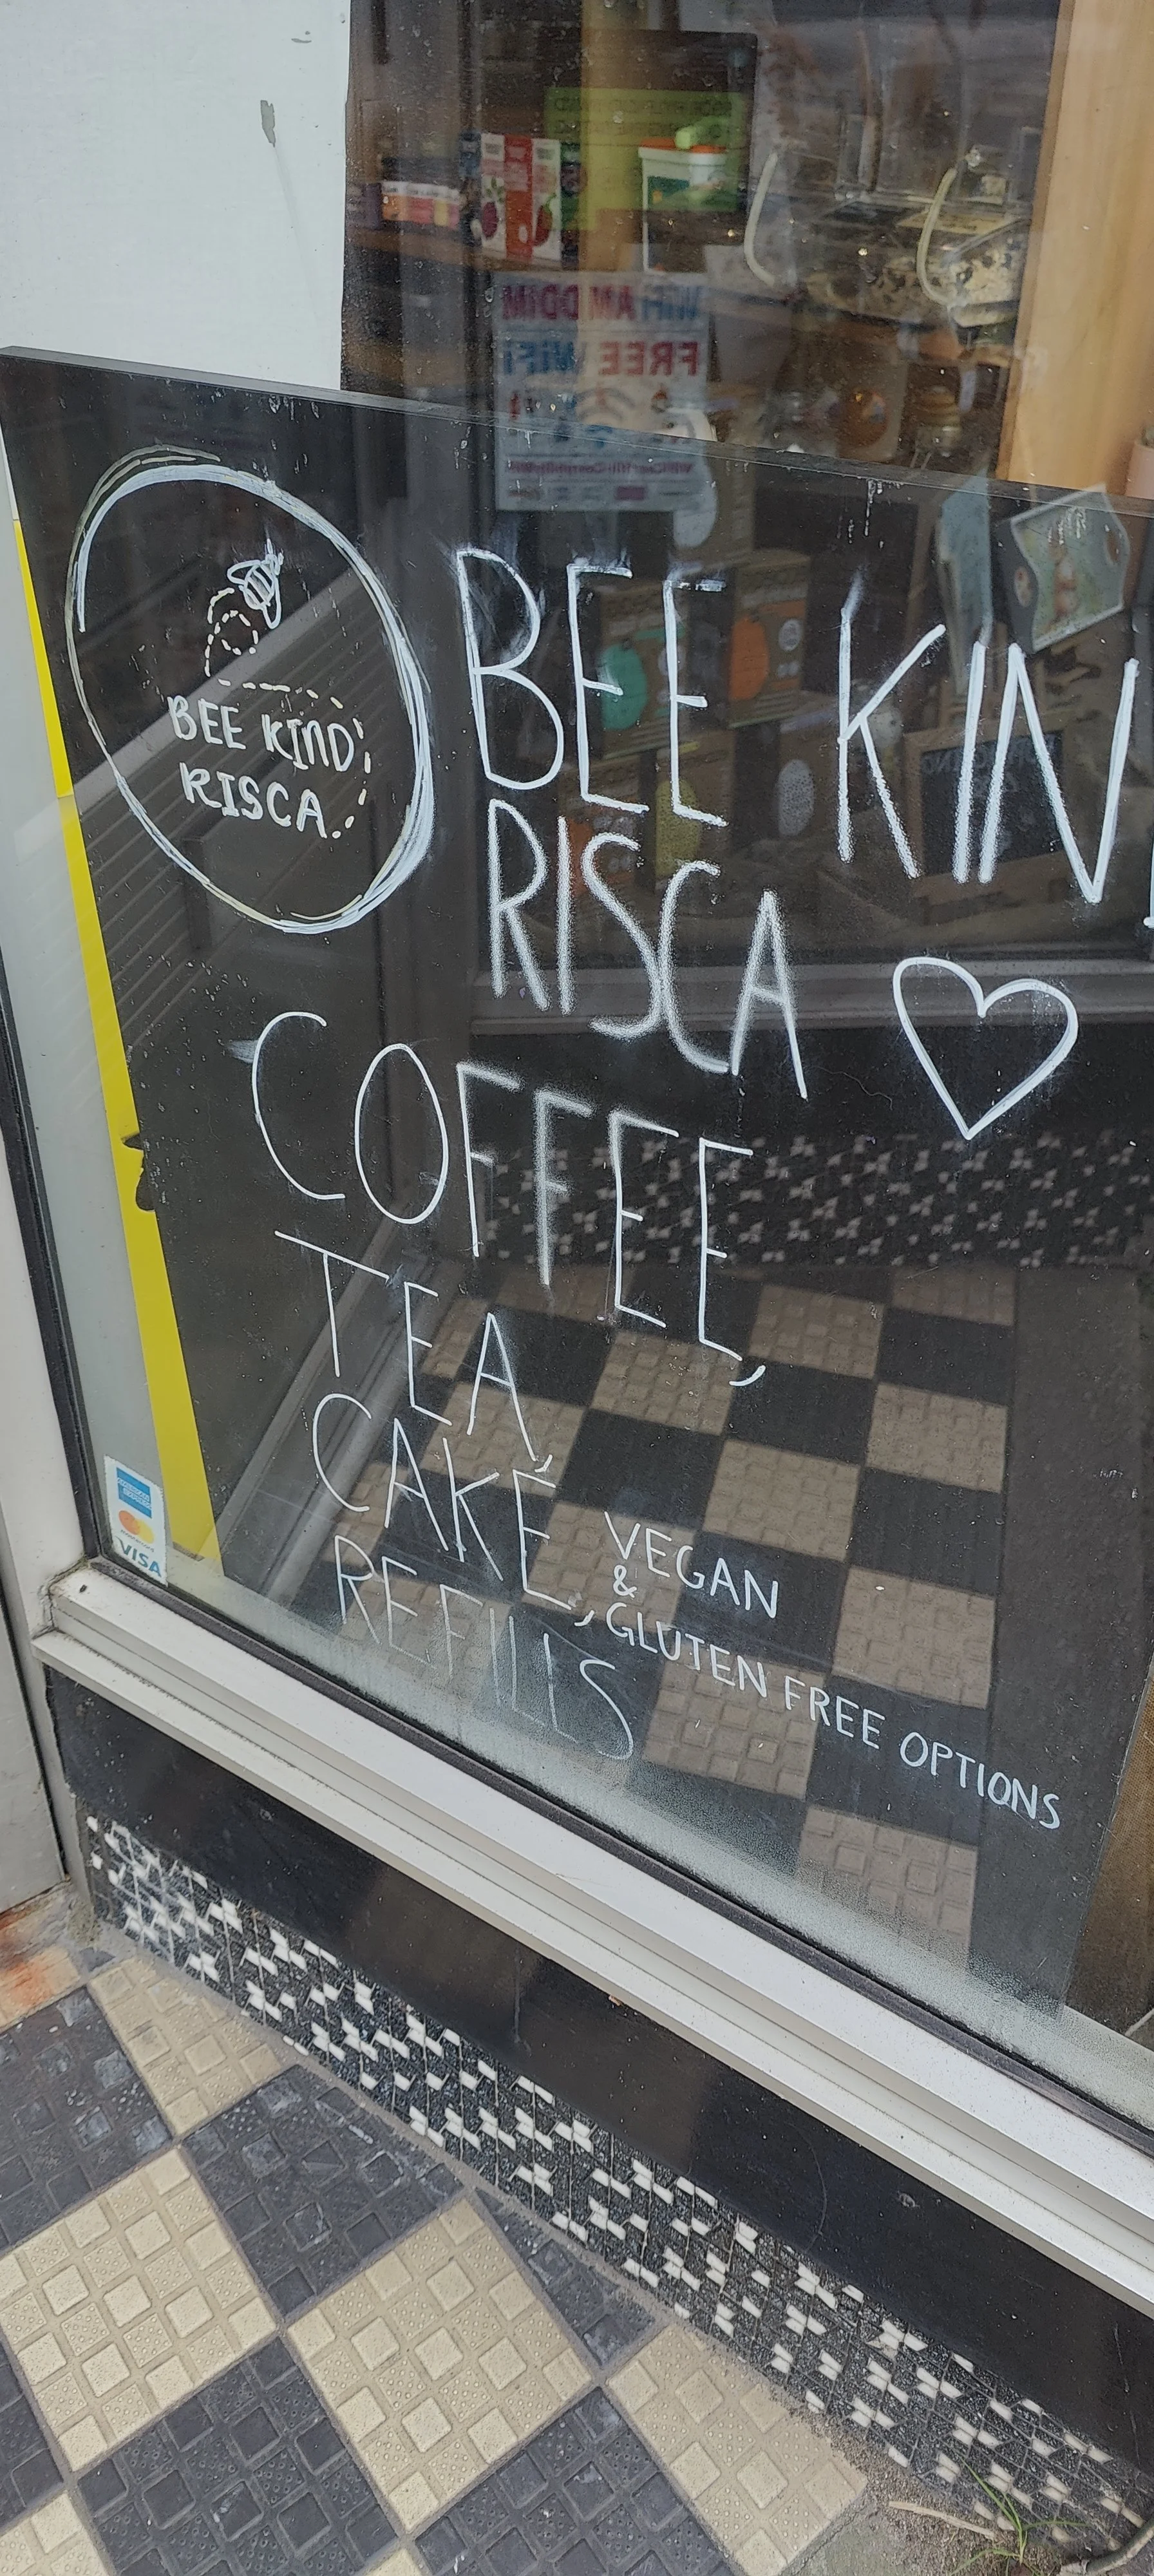 WiFi AM DDIM
FREE WiFi
BEE KIND
RISCA
BEE KIN
RISCA
COFFEE,
TEA,
CAKE,
REFILLS
VEGAN
&
GLUTEN FREE OPTIONS
AMERICAN EXPRESS
mastercard
VISA